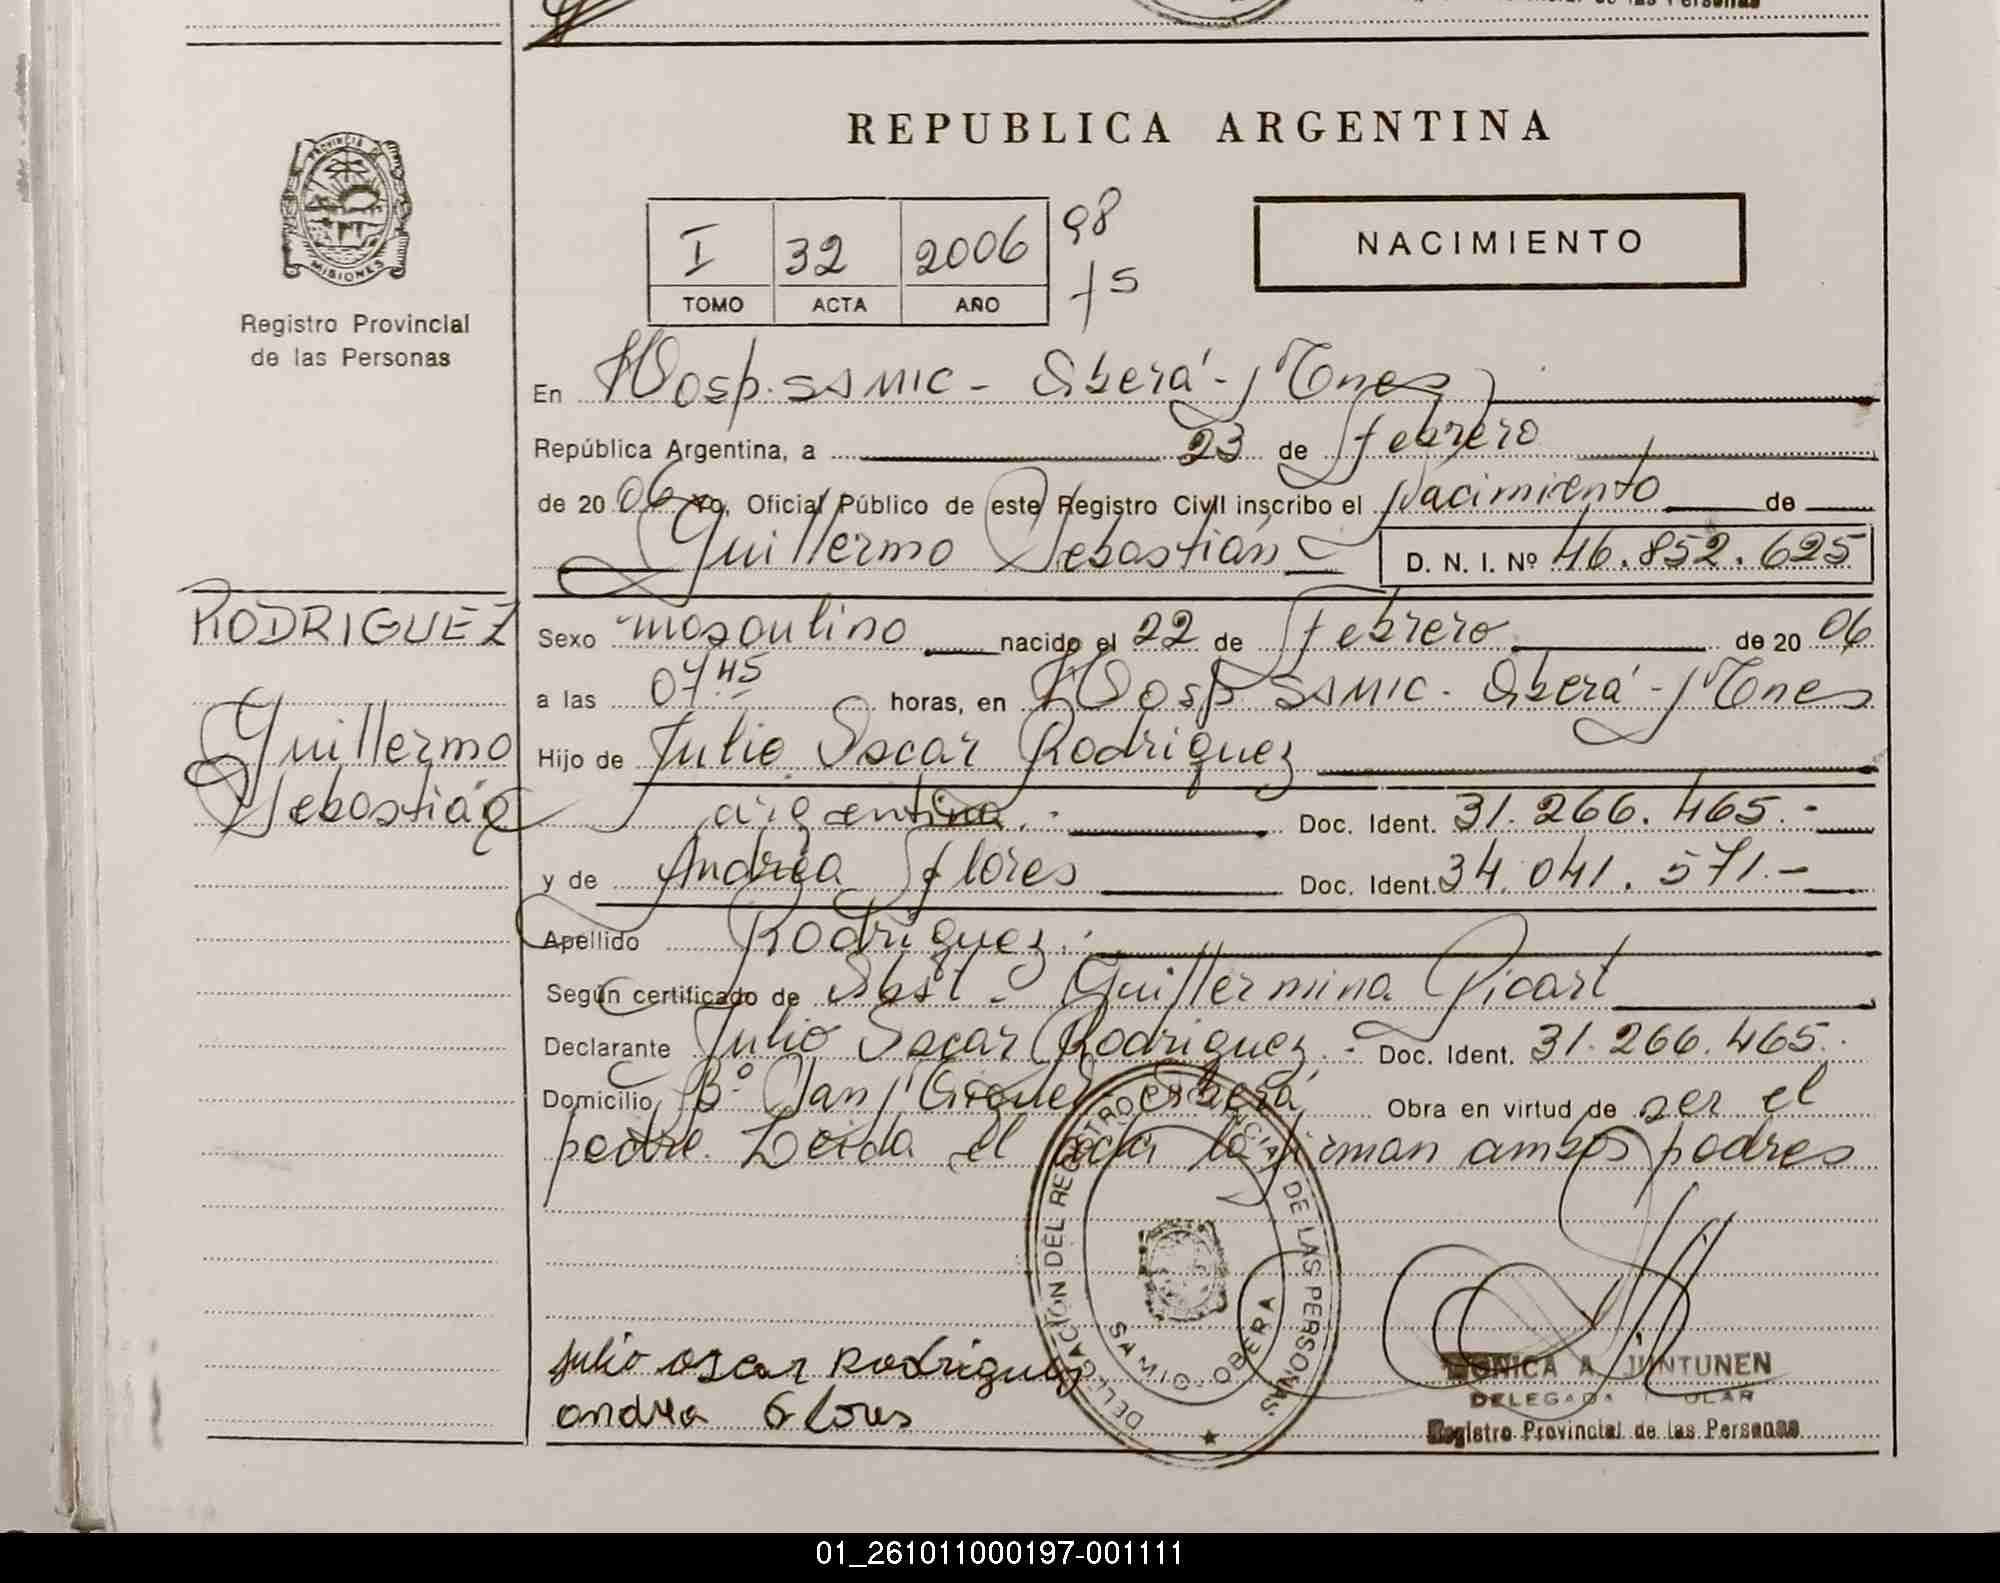 de las Personas
REPUBLICA ARGENTINA
PROVINCIA DE
MISIONES
Registro Provincial
de las Personas
I 32 2006 98
TOMO ACTA AÑO
NACIMIENTO
En Hosp. SAMIC - Oberá - Mnes
República Argentina, a 23 de febrero
de 20 06 Yo, Oficial Público de este Registro Civil inscribo el Nacimiento de
Guillermo Sebastián D. N. I. Nº 46.852.625
RODRIGUEZ
Guillermo
Sebastián
Sexo masculino nacido el 22 de febrero de 20 06
a las 07 45 horas, en Hosp. SAMIC - Oberá - Mnes
Hijo de Julio Oscar Rodriguez
argentina.- Doc. Ident. 31.266.465.-
y de Andrea Flores Doc. Ident. 34.041.571.-
Apellido Rodriguez.
Según certificado de Obst - Guillermina Picart
Declarante Julio Oscar Rodriguez.- Doc. Ident. 31.266.465.
Domicilio Bº San Miguel Oberá Obra en virtud de ser el
padre. Leida el acta la firman ambos padres
DELEGACIÓN DEL REGISTRO PROVINCIAL DE LAS PERSONAS
SAMIC - OBERA
Julio Oscar Rodriguez
andrea Flores
MONICA A JUNTUNEN
DELEGADA TITULAR
Registro Provincial de las Personas
01_261011000197-001111